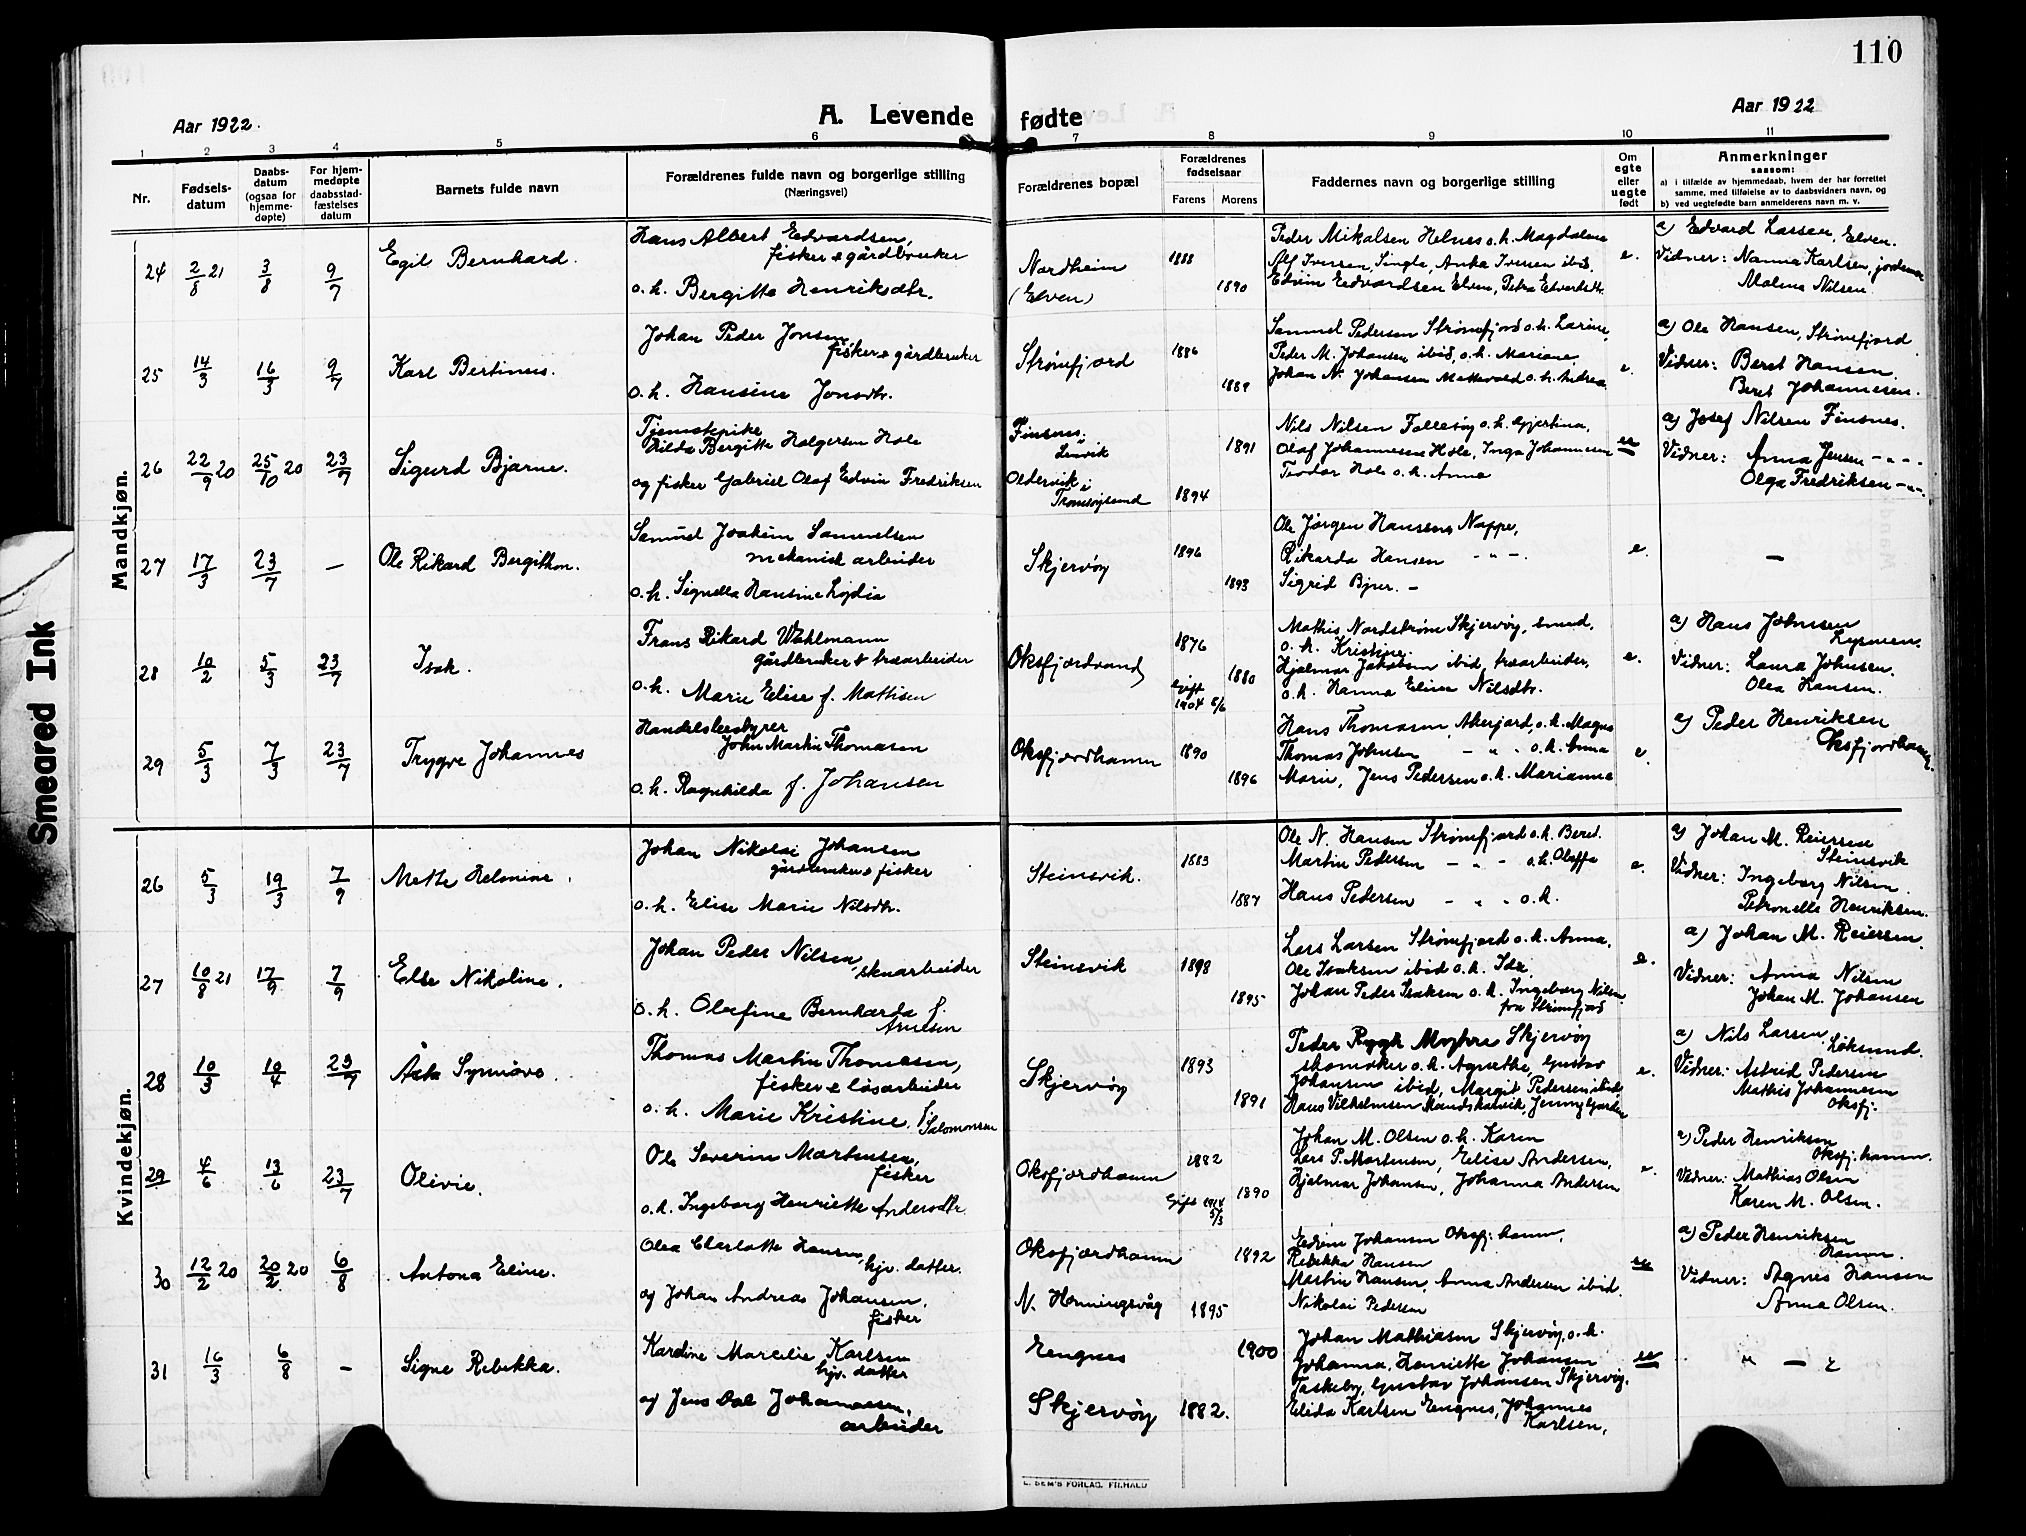 110
Aar 1922.
A. Levende fødte
Aar 1922
1 2 3 4 5 6 7 8 9 10 11
Nr.
Fødsels-
datum
Daabs-
datum
(ogsaa for
hjemme-
døpte)
For hjem-
medøpte
daabsstad-
fæstelses
datum
Barnets fulde navn
Forældrenes fulde navn og borgerlige stilling
(Næringsvei)
Forældrenes bopæl
Forældrenes
fødselsaar
Farens Morens
Faddernes navn og borgerlige stilling
Om
egte
eller
uegte
født
Anmerkninger
saasom:
a) i tilfælde av hjemmedaab, hvem der har forrettet
samme, med tilføielse av to daabsvidners navn, og
b) ved uegtefødte barn anmelderens navn m. v.
Mandkjøn.
24 2/8 21 3/8 9/7 Egil Bernhard.
Hans Albert Edvardsen,
fisker & gårdbruker
o. h. Bergitte Henriksdtr.
Nordheim
(Elven)
1888
1890
Peder Mikalsen Helnes o. h. Magdalene
Alf Iversen, Singla, Anka Iversen ibid,
Edvin Edvardsen Elven, Petra Edvardsdtr.
e.
a) Edvard Larsen, Elven.
Vidner: Nanna Karlsen, jordemor
Malena Nilsen.
25 14/3 16/3 9/7 Karl Bertinus.
Johan Peder Jonsen
fisker & gårdbruker
o. h. Hansine Jonsdtr.
Strømfjord
1886
1889
Samuel Pedersen Strømfjord o. h. Larine,
Peder M. Johansen ibid, o. h. Mariane,
Johan N. Johansen Mettevold o. h. Andrea
e.
a) Ole Hansen, Strømfjord
Vidner: Beret Hansen.
Beret Johannesen.
26 22/9 20 25/10 20 23/7 Sigurd Bjarne.
Tjenestepike
Hilda Bergitte Holgersen Hole
og fisker Gabriel Olaf Edvin Fredriksen
Finsnes,
Lenvik
Oldervik i
Tromsøysund
1891
1894
Nils Nilsen Follesøy o. h. Gjertina,
Olaf Johannesen Hole, Inga Johannesen
Teodor Hole o. h. Anna
ue
a) Josef Nilsen Finsnes.
Vidner: Anna Jensen - " -
Olga Fredriksen - " -
27 17/3 23/7 — Ole Rikard Bergithon.
Samuel Joakim Samuelsen
mekanisk arbeider
o. h. Signella Hansine Lydia
Skjervøy
1896
1893
Ole Jørgen Hansen Nappe,
Rikarda Hansen - " -.
Sigrid -
e.
—
28 10/2 5/3 23/7 Isak.
Frans Rikard Wahlmann
gårdbruker & træarbeider
o. h. Marie Elise f. Mattisen
Oksfjordvand
1876
1880
Gift
1904 5/6
Mathis Nordstrøm Skjervøy, smed,
o. h. Kristine.
Hjalmar Jakobsen ibid, træarbeider,
o. h. Hanna Elina Nilsdtr.
e.
a) Hans Johnsen
Vidner: Laura Johnsen.
Olea Hansen.
29 5/3 7/3 23/7 Trygve Johannes
Handelsbestyrer
John Martin Thomasen
o. h. Ragnhilda f. Johansen
Oksfjordhamn
1890
1896
Hans Thomasen, o. h. Magna
Thomas Johnsen - " - o. h. Anna
Marie, Jens Pedersen o. h. Marianna
e.
a) Peder Henriksen
Oksfjordhamn.
Kvindekjøn.
26 5/3 19/3 7/9 Mette Helmine.
Johan Nikolai Johansen
gårdbruker & fisker
o. h. Elise Marie Nilsdtr.
Steinsvik.
1883
1887
Ole N. Hansen Strømfjord o. h. Beret.
Martin Pedersen - " - o. h. Oleffa
Hans Pedersen - " - o. h.
e.
a) Johan M. Reiersen
Steinsvik
Vidner: Ingeborg Nilsen.
Petronelle Henriksen.
27 10/8 21 17/9 7/9 Else Nikoline.
Johan Peder Nilsen,
skoarbeider
o. h. Olefine Bernharda f.
Arnesen
Steinsvik
1898
1895
Lars Larsen Strømfjord o. h. Anna.
Ole Isaksen ibid o. h. Ida,
Johan Peder Isaksen o. h. Ingeborg Nilsen
fra Strømfjord
e.
a) Johan M. Reiersen.
Vidner: Anna Nilsen
Johan M. Johansen
28 10/3 10/4 23/7 Synnøve.
Thomas Martin Thomasen,
fisker & løsarbeider
o. h. Marie Kristine, f. Salomonsen
Skjervøy
1893
1891
Peder Skjervøy
skomaker o. h. Agnethe, Gustav
Johansen ibid, Margit Pedersen ibid
Hans Vilhelmsen Jenny
e.
a) Nils Larsen,
Løksund.
Vidner: Astrid Pedersen
Mathis Johannesen
Oksfj.
29 4/6 13/6 23/7 Olivie.
Ole Severin Mortensen,
fisker
o. h. Ingeborg Henriette Andersdtr.
Oksfjordhamn
1882
1890
Gift 1914
5/3
Johan M. Olsen o. h. Karen
Lars P. Mortensen, Elise Andersen,
Hjalmar Johansen, Johanna Andersen
e.
a) Peder Henriksen
Oksfj. hamn.
Vidner: Mathias Olsen
Karen M. Olsen.
30 12/2 20 20/2 20 6/8 Antona Eline.
Olea Charlotte Hansen,
hjv. datter.
og Johan Andreas Johansen,
fisker
Oksfjordhamn
N. Honningsvåg
1892
1895
Edvin Johansen Oksfj. hamn,
Rebekka Hansen
Martin Hansen, Anna Andersen ibid.
Nikolai Pedersen
ue
a) Peder Henriksen
Hamn.
Vidner: Agnes Hansen
Anna Olsen.
31 16/3 6/8 — Signe Rebekka.
Karoline Marcelie Karlsen
hjv. datter
og Jens Dal Johannesen,
arbeider
Engnes
Skjervøy
1900
1882.
Johan Mathiasen Skjervøy, o. h.
Johanna, Henriette Johansen
Taskeby, Gustav Johansen Skjervøy.
Elida Karlsen Engnes, Johannes
Karlsen,
ue
" —
E. SEM'S FORLAG, FR.HALD
Smeared Ink